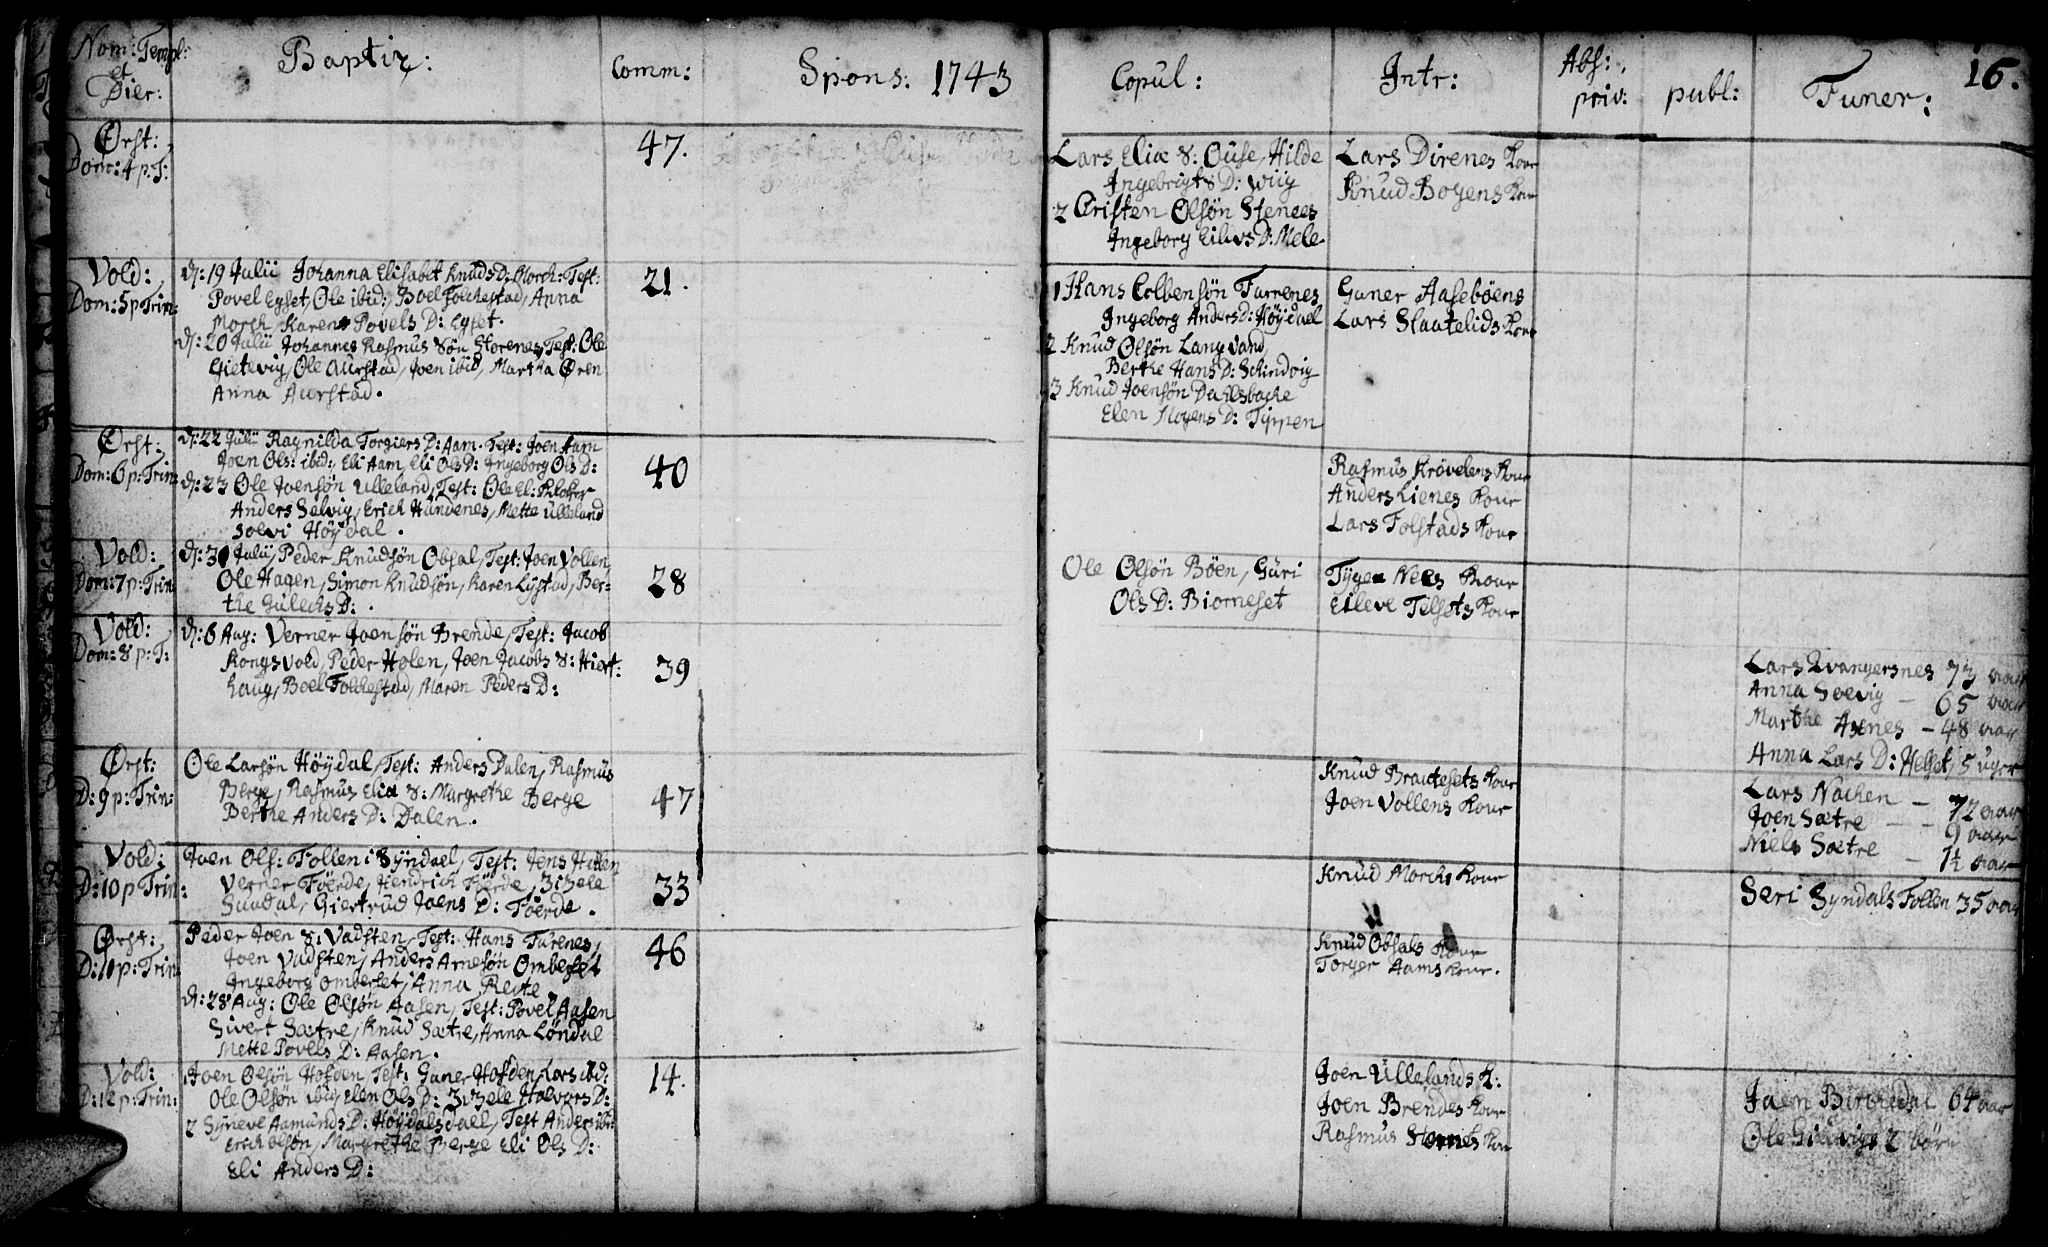 Nom: Templ:
et
Dier:
Baptiz:
Comm:
Spons: 1743
Copul:
Intr:
Abs:
priv:
publ:
Funer:
16.
Ørst:
Dom: 4 p: T:
47.
Lars Eliæ S: Ouse, Hilde
Ingebrigts D: Wiig
2 Cristen Olsön Stenees
Ingeborg Eilivs D: Mele.
Lars Direnes Kone
Knud Boyens Kone
Vold:
Dom: 5 p Trin:
d: 19 Julii Johanna Elisabet Knuds D: Morch: Test:
Povel Eyset, Ole ibid:, Boel Folchestad, Anna
Morch, Karen Povels D: Eyset.
d: 20 Julii Johannes Rasmus Sön Storenes, Test: Ole
Gietevig, Ole Aurstad, Joen ibid, Martha Øren
Anna Aurstad.
21.
1 Hans Colbensön Furrenes
Ingeborg Anders D: Höydael
2 Knud Olsön Langvand
Berthe Hans D: Schindvig
3 Knud Joensön Dahlsbache
Elen Mogens D: Typpen
Guner Aasebøens
Lars Slaatelids Kone
Ørst:
Dom: 6 p: Trin:
d: 22 Julii Ragnilda Torgiers D: Aam. Test: Joen Aam
Joen Ols: ibid:, Eli Aam, Eli Ols D: Ingeborg Ols D:
d: 23 Ole Joensön Ulleland, Test: Ole El: Klokker
Anders Selvig, Erich Hundenes, Mette Ulleland
Soevi Höydal.
40
Rasmus Krövelens Kone
Anders Lienes Kone
Lars Folstads Kone
Vold:
Dom: 7 p: Trin:
d: 30 Julii, Peder Knudsön Obsal, Test: Joen Vollen,
Ole Hagen, Simon Knudsön, Karen Lystad, Ber-
the Gulechs D:.
28
Ole Olsön Böen, Guri
Ols D: Biorneset
Tyge Nees Kone
Eileve Telsets Kone
Vold:
Dom: 8 p: T:
d: 6 Aug: Verner Joensön Brende, Test: Jacob
Kongsvold, Peder Holen, Joen Jacobs S: Hiert-
haug, Boel Folchestad, Maren Peders D:
39
Lars Qvangersnes 73 aar
Anna Soevig — 65 aar
Marthe Axnes — 48 aar
Anna Lars D: Helset, 5 uger
Ørst:
D: 9 p: Trin:
Ole Larsön Höydal, Test: Anders Dalen, Rasmus
Berge, Rasmus Eliæ S: Margrethe Berge
Berthe Anders D: Dalen.
47
Knud Brautesets Kone
Joen Vollens Kone
Lars Nachen — 72 aar
Joen Sætre — 9 aar
Niels Sætre — 1½ aar
Vold:
D: 10 p Trin:
Joen Ols: Follen i Syndael, Test: Jens Hollen
Verner Föerde, Hendrich Föerde, Zizele
Sundal, Giertrud Joens D: Föerde.
33
Knud Morchs Kone
Seri Syndals Follen 35 aar
Ørst:
D: 11 p: Trin:
Peder Joen S: Vadsten, Test: Hans Furenes,
Joen Vadsten, Anders Arnesön Omberset
Ingeborg Omberset, Anna Reite
d: 28 Aug: Ole Olsön Aasen, Test: Povel Aasen
Sivert Sætre, Knud Sætre, Anna Löndal
Mette Povels D: Aasen.
46
Knud Obsals Kone
Torger Aams Kone.
Vold:
D: 12 p: Trin:
1 Joen Olsön Hofden, Test: Guner Hofden, Lars ibid:
Ole Olsön ibid, Elen Ols D: Zizele Halvors D:
2 Syneve Aamunds D: Höydalsdael, Test Anders ibi:
Erich Olsön, Margrethe Berge Eli Ols D:
Eli Anders D:
14.
Joen Ullelands K:
Joen Brendes Kone
Rasmus Stornes Kone
Joen Birchedal 64 aar
Ole Gietvigs 2 börn